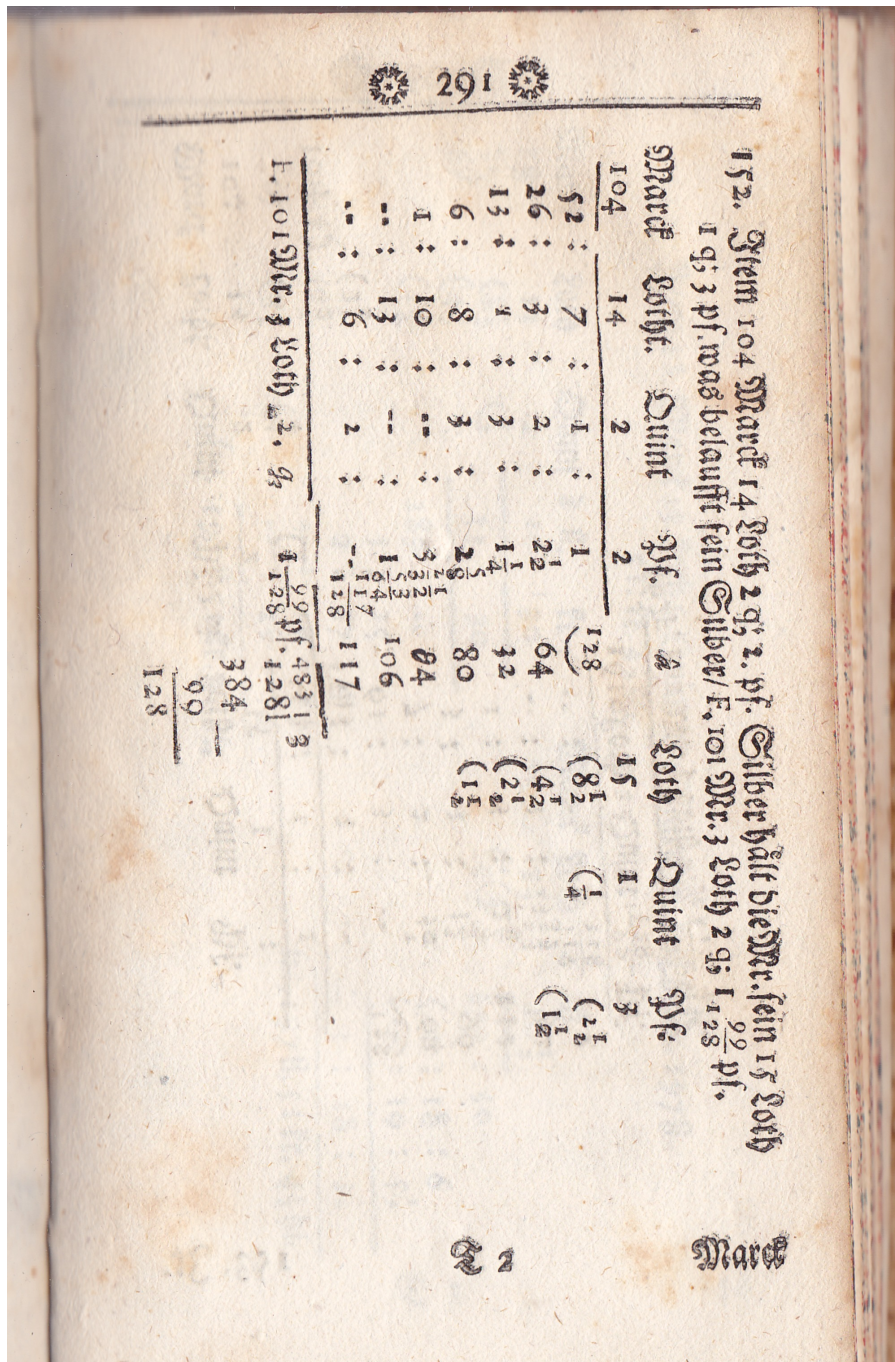 291
152. Item 104 Marck 14 Loth 2 q; 2. pf. Silber hält die Mr. fein 15 Loth
1 q; 3 pf. was belaufft fein Silber / F. 101 Mr. 3 Loth 2 q; 1 99/128 pf.
Marck Lotht. Quint Pf. à Loth Quint Pf:
104 14 2 2 15 1 3
52 : 7 : 1 : 1 128) (8 1/2 (1/4 (2 1/2
26 : 3 : 2 : 2 1/2 64 (4 1/2 (1 1/2
13 : 1 : 3 : 1 1/4 32 (2 1/2
6 : 8 : 3 : 2 5/8 80 (1 1/2
1 : 10 : -- : 3 21/32 84
-- : 13 : -- : 1 53/64 106
-- : 6 : 2 : -- 117/128 117
F. 101 Mr. 3 Loth 2. q; 1 99/128 pf. 483 | 3
128 |
384
99
128
T 2
Marck